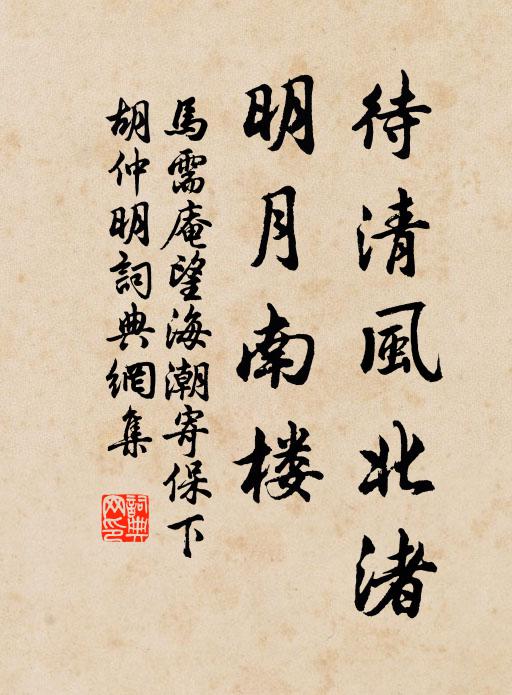 待清風北渚
明月南楼
馬需庵望海潮寄保下
胡仲明詞典網集
詞典
网印